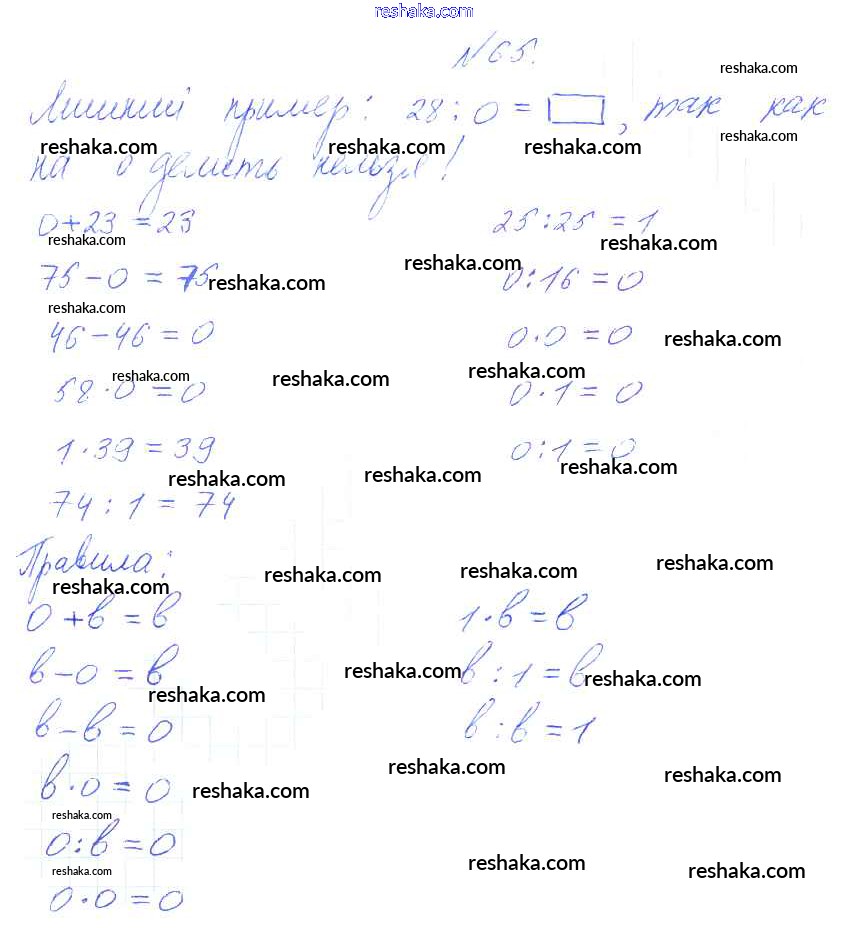 reshaka.com
№65.
reshaka.com
Лишний пример: 28:0=□, так как
reshaka.com
reshaka.com reshaka.com reshaka.com
на 0 делить нельзя!
0+23=23 25:25=1
reshaka.com reshaka.com
reshaka.com
75-0=75 reshaka.com 0:16=0
reshaka.com
46-46=0 0·0=0 reshaka.com
reshaka.com reshaka.com reshaka.com
58·0=0 0·1=0
1·39=39 0:1=0
reshaka.com reshaka.com reshaka.com
74:1=74
Правила:
reshaka.com reshaka.com reshaka.com reshaka.com
0+в=в 1·в=в
в-0=в reshaka.com в:1=в reshaka.com
reshaka.com
в-в=0 в:в=1
reshaka.com reshaka.com
в·0=0 reshaka.com
reshaka.com
0:в=0
reshaka.com reshaka.com reshaka.com
0·0=0